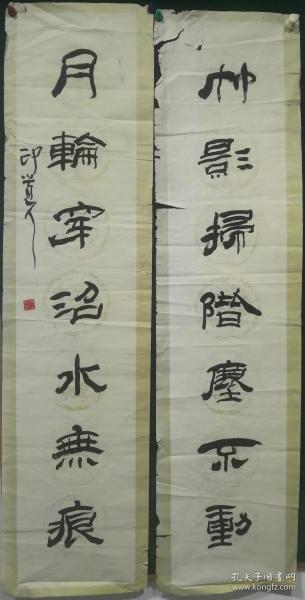 竹影掃階塵不動
月輪穿沼水無痕
孔夫子旧书网